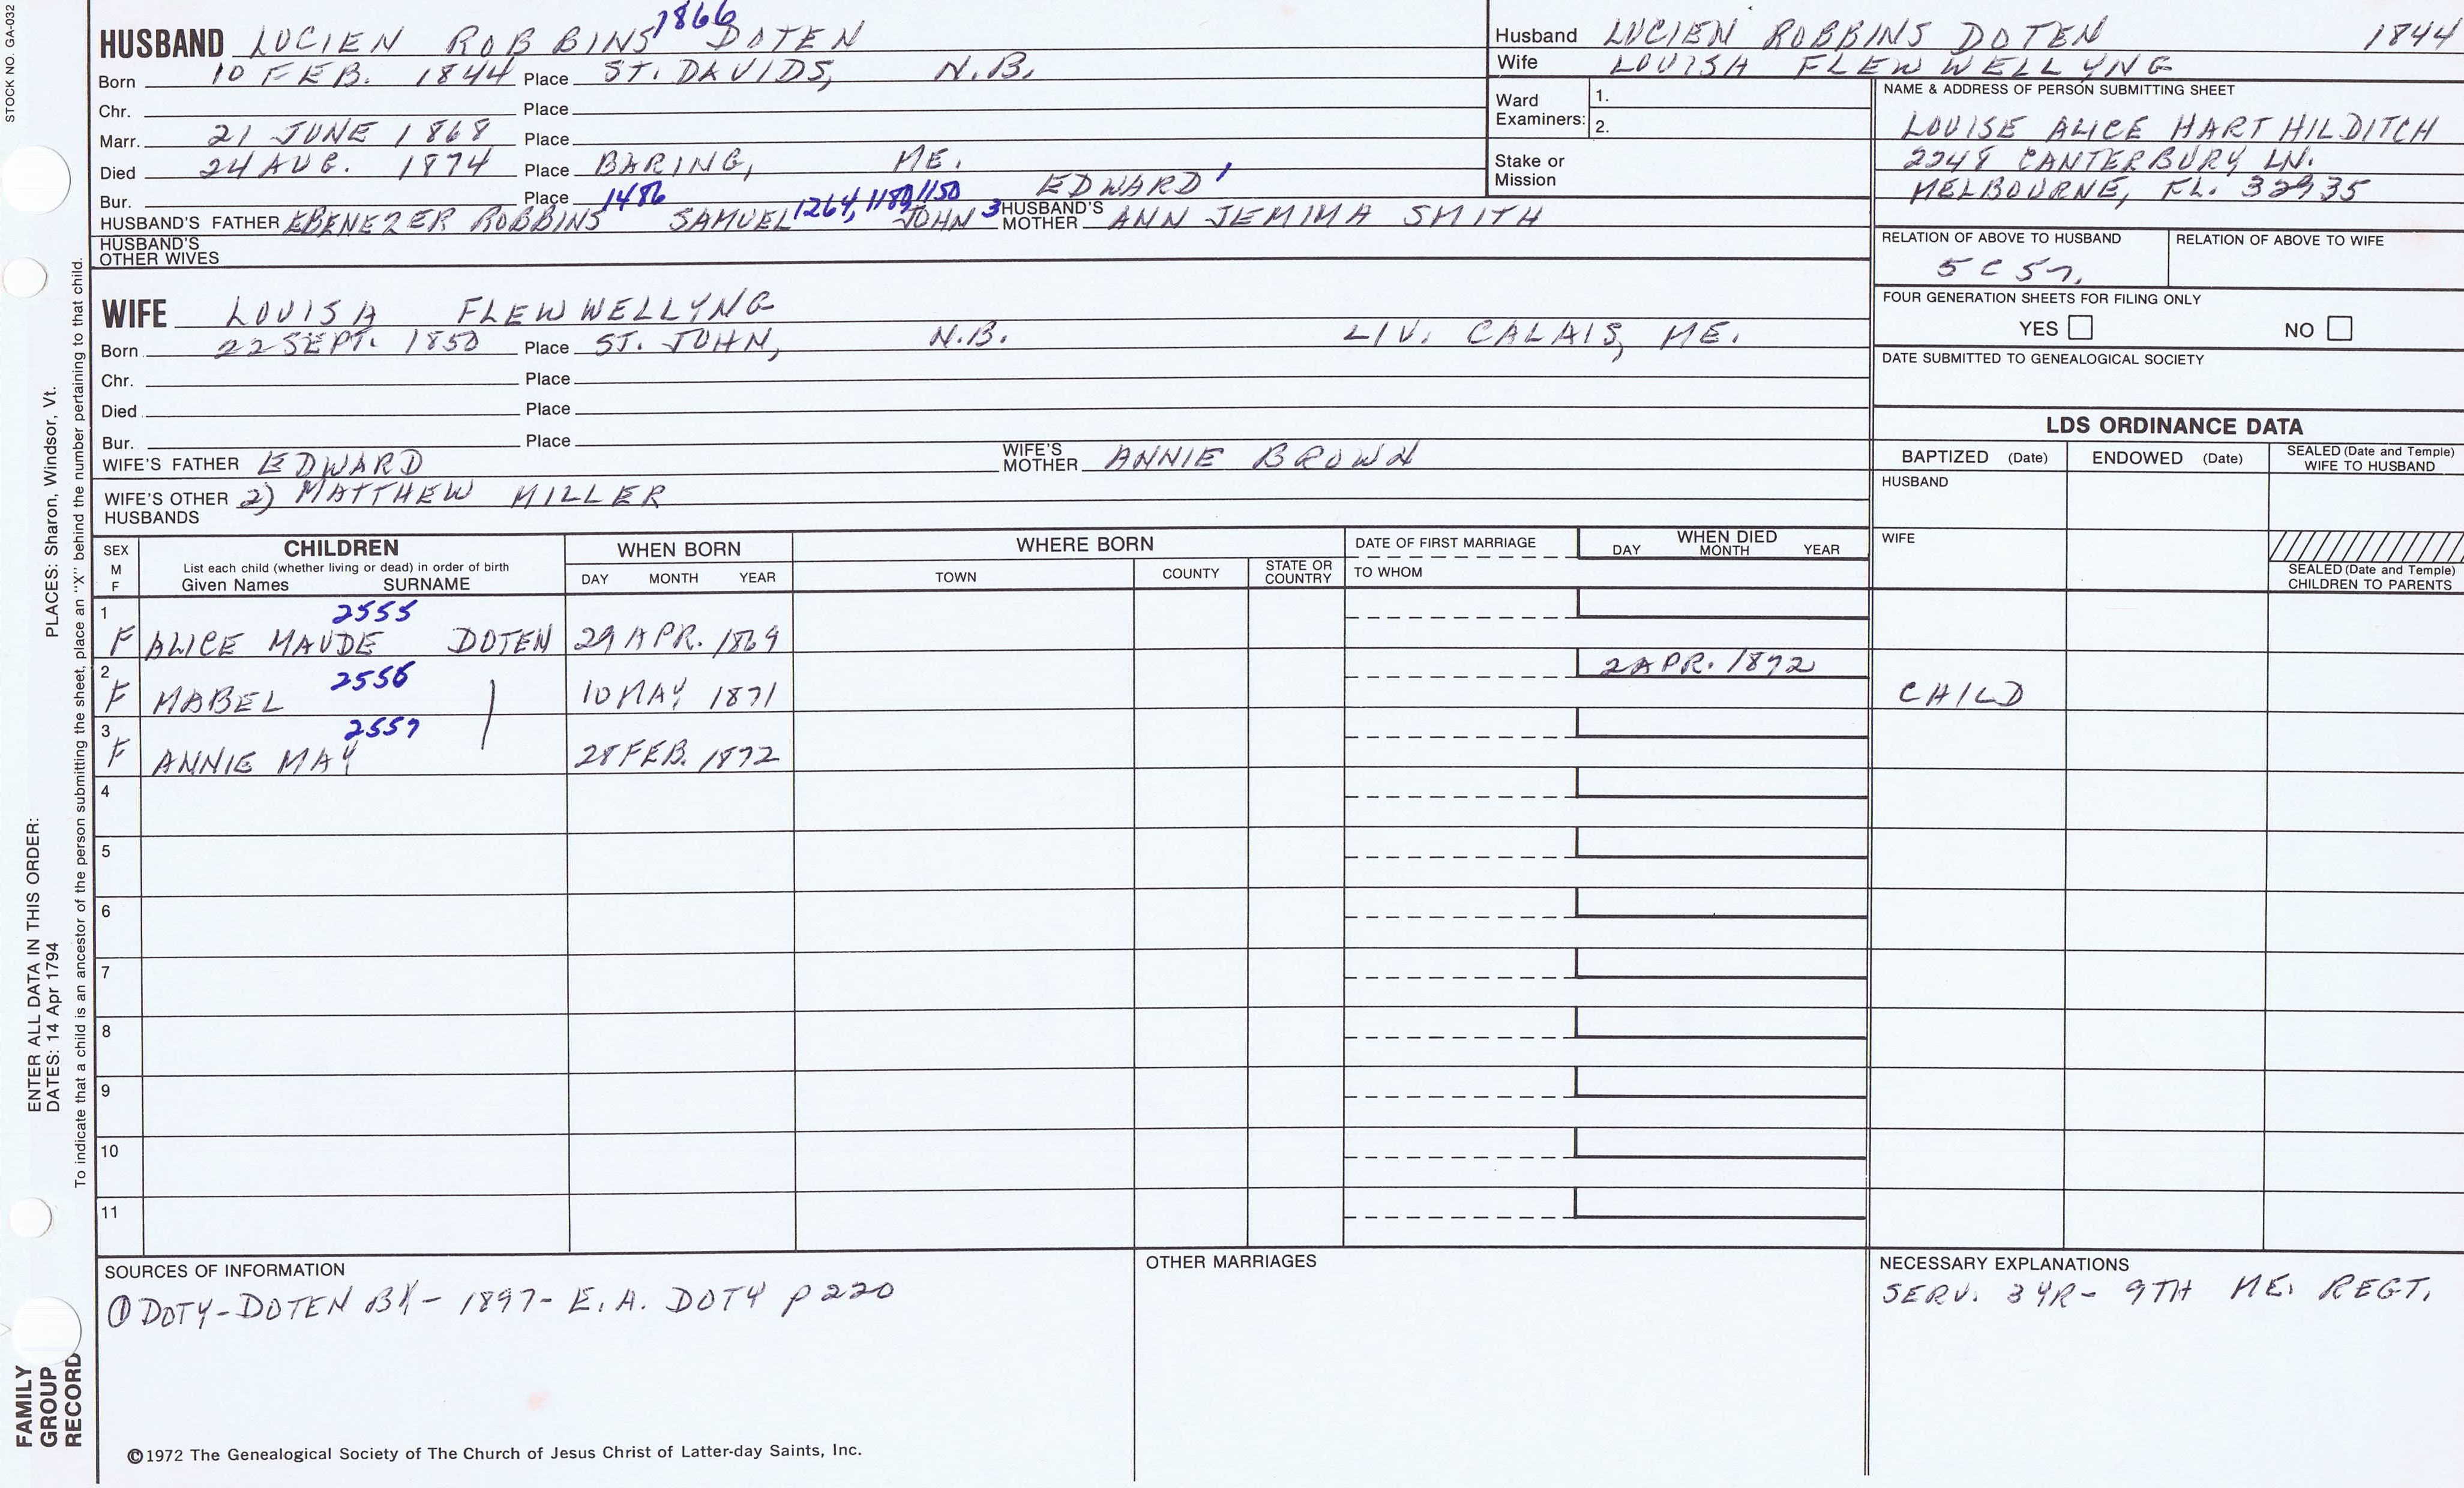 STOCK NO. GA-032
1866
HUSBAND LUCIEN ROBBINS DOTEN
Born 10 FEB. 1844 Place ST. DAVIDS, N.B.
Chr. Place
Marr. 21 JUNE 1868 Place
Died 24 AUG. 1874 Place BARING, ME.
Bur. Place 1486 1264, 1180, 1150 EDWARD 1
HUSBAND'S FATHER EBENEZER ROBBINS SAMUEL JOHN 3 HUSBAND'S MOTHER ANN JEMIMA SMITH
HUSBAND'S OTHER WIVES
Husband LUCIEN ROBBINS DOTEN 1844
Wife LOUISA FLEWWELLYNG
Ward Examiners: 1.
2.
Stake or Mission
NAME & ADDRESS OF PERSON SUBMITTING SHEET
LOUISE ALICE HART HILDITCH
2248 CANTERBURY LN.
MELBOURNE, FL. 32935
RELATION OF ABOVE TO HUSBAND RELATION OF ABOVE TO WIFE
5C
FOUR GENERATION SHEETS FOR FILING ONLY
YES NO
DATE SUBMITTED TO GENEALOGICAL SOCIETY
WIFE LOUISA FLEWWELLYNG
Born 22 SEPT. 1850 Place ST. JOHN, N.B. LIV. CALAIS, ME.
Chr. Place
Died Place
Bur. Place
WIFE'S FATHER EDWARD WIFE'S MOTHER ANNIE BROWN
WIFE'S OTHER HUSBANDS 2) MATTHEW MILLER
LDS ORDINANCE DATA
BAPTIZED (Date) ENDOWED (Date) SEALED (Date and Temple) WIFE TO HUSBAND
HUSBAND
WIFE
SEALED (Date and Temple) CHILDREN TO PARENTS
SEX M F CHILDREN WHEN BORN WHERE BORN DATE OF FIRST MARRIAGE WHEN DIED
List each child (whether living or dead) in order of birth
Given Names SURNAME DAY MONTH YEAR TOWN COUNTY STATE OR COUNTRY TO WHOM DAY MONTH YEAR
1 2555
F ALICE MAUDE DOTEN 29 APR. 1869
2 2556 2 APR. 1872
F MABEL 10 MAY 1871 CHILD
3 2557
F ANNIE MAY 28 FEB. 1872
4
5
6
7
8
9
10
11
SOURCES OF INFORMATION
① DOTY-DOTEN BK - 1897 - E. A. DOTY p 220
OTHER MARRIAGES
NECESSARY EXPLANATIONS
SERV. 3 YR - 9TH ME. REGT.
©1972 The Genealogical Society of The Church of Jesus Christ of Latter-day Saints, Inc.
FAMILY
GROUP
RECORD
ENTER ALL DATA IN THIS ORDER: PLACES: Sharon, Windsor, Vt.
DATES: 14 Apr 1794
To indicate that a child is an ancestor of the person submitting the sheet, place an "X" behind the number pertaining to that child.